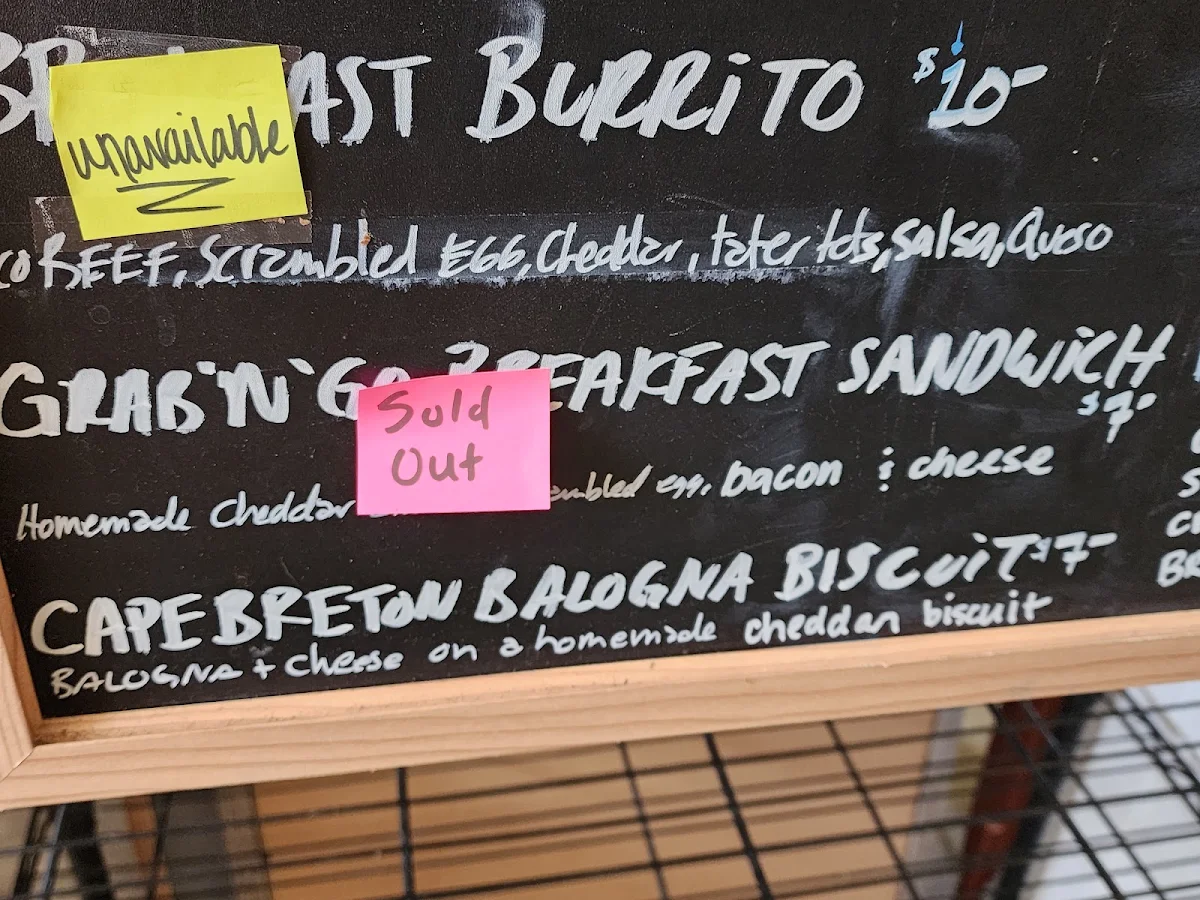 BR AST BURRiTO $10-
unavailable
co BEEF, Scrambled EGG, Cheddar, tater tots, salsa, Queso
GRAB 'N' Go BREAKFAST SANDWiCH
$7-
Sold
Out
Homemade Cheddar mbled egg, bacon & cheese
CAPE BRETON BALOGNA BISCUiT $7-
BALOGNA + Cheese on a homemade cheddar biscuit
S
BR